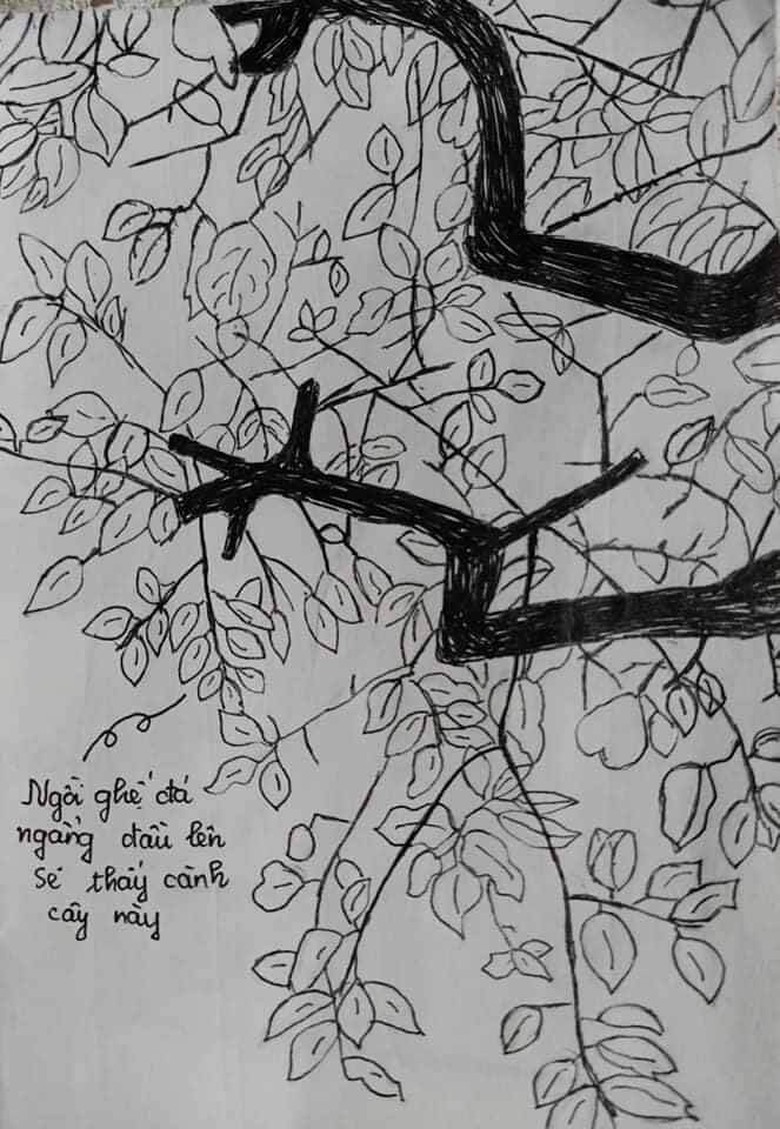 Ngồi ghế đá
ngẩng đầu lên
sẽ thấy cành
cây này